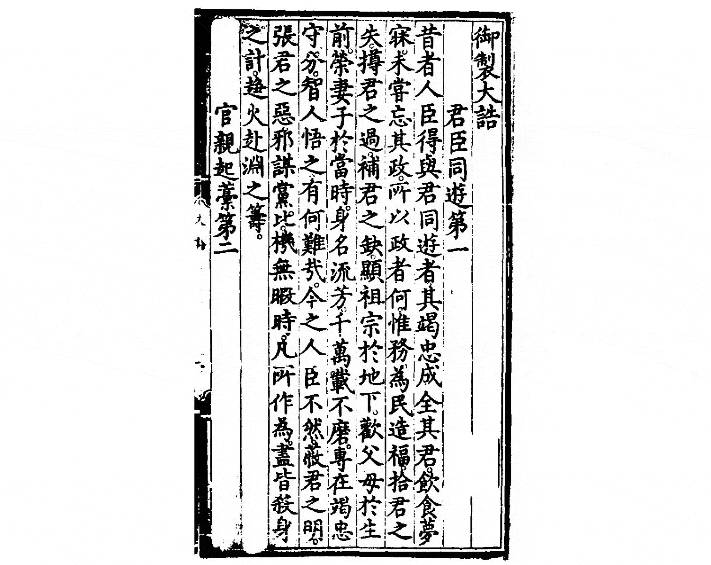 御製大誥
君臣同遊第一
昔者人臣得與君同遊者。其竭忠成全其君。飲食夢
寐。未嘗忘其政。所以政者何。惟務為民造福。拾君之
失。撙君之過。補君之缺。顯祖宗於地下。歡父母於生
前。榮妻子於當時。身名流芳。千萬載不磨。專在竭忠
守分。智人悟之有何難哉。今之人臣不然。蔽君之明。
張君之惡。邪謀黨比。機無暇時。凡所作為。盡皆殺身
之計。趨火赴淵之籌。
官親起藁第二